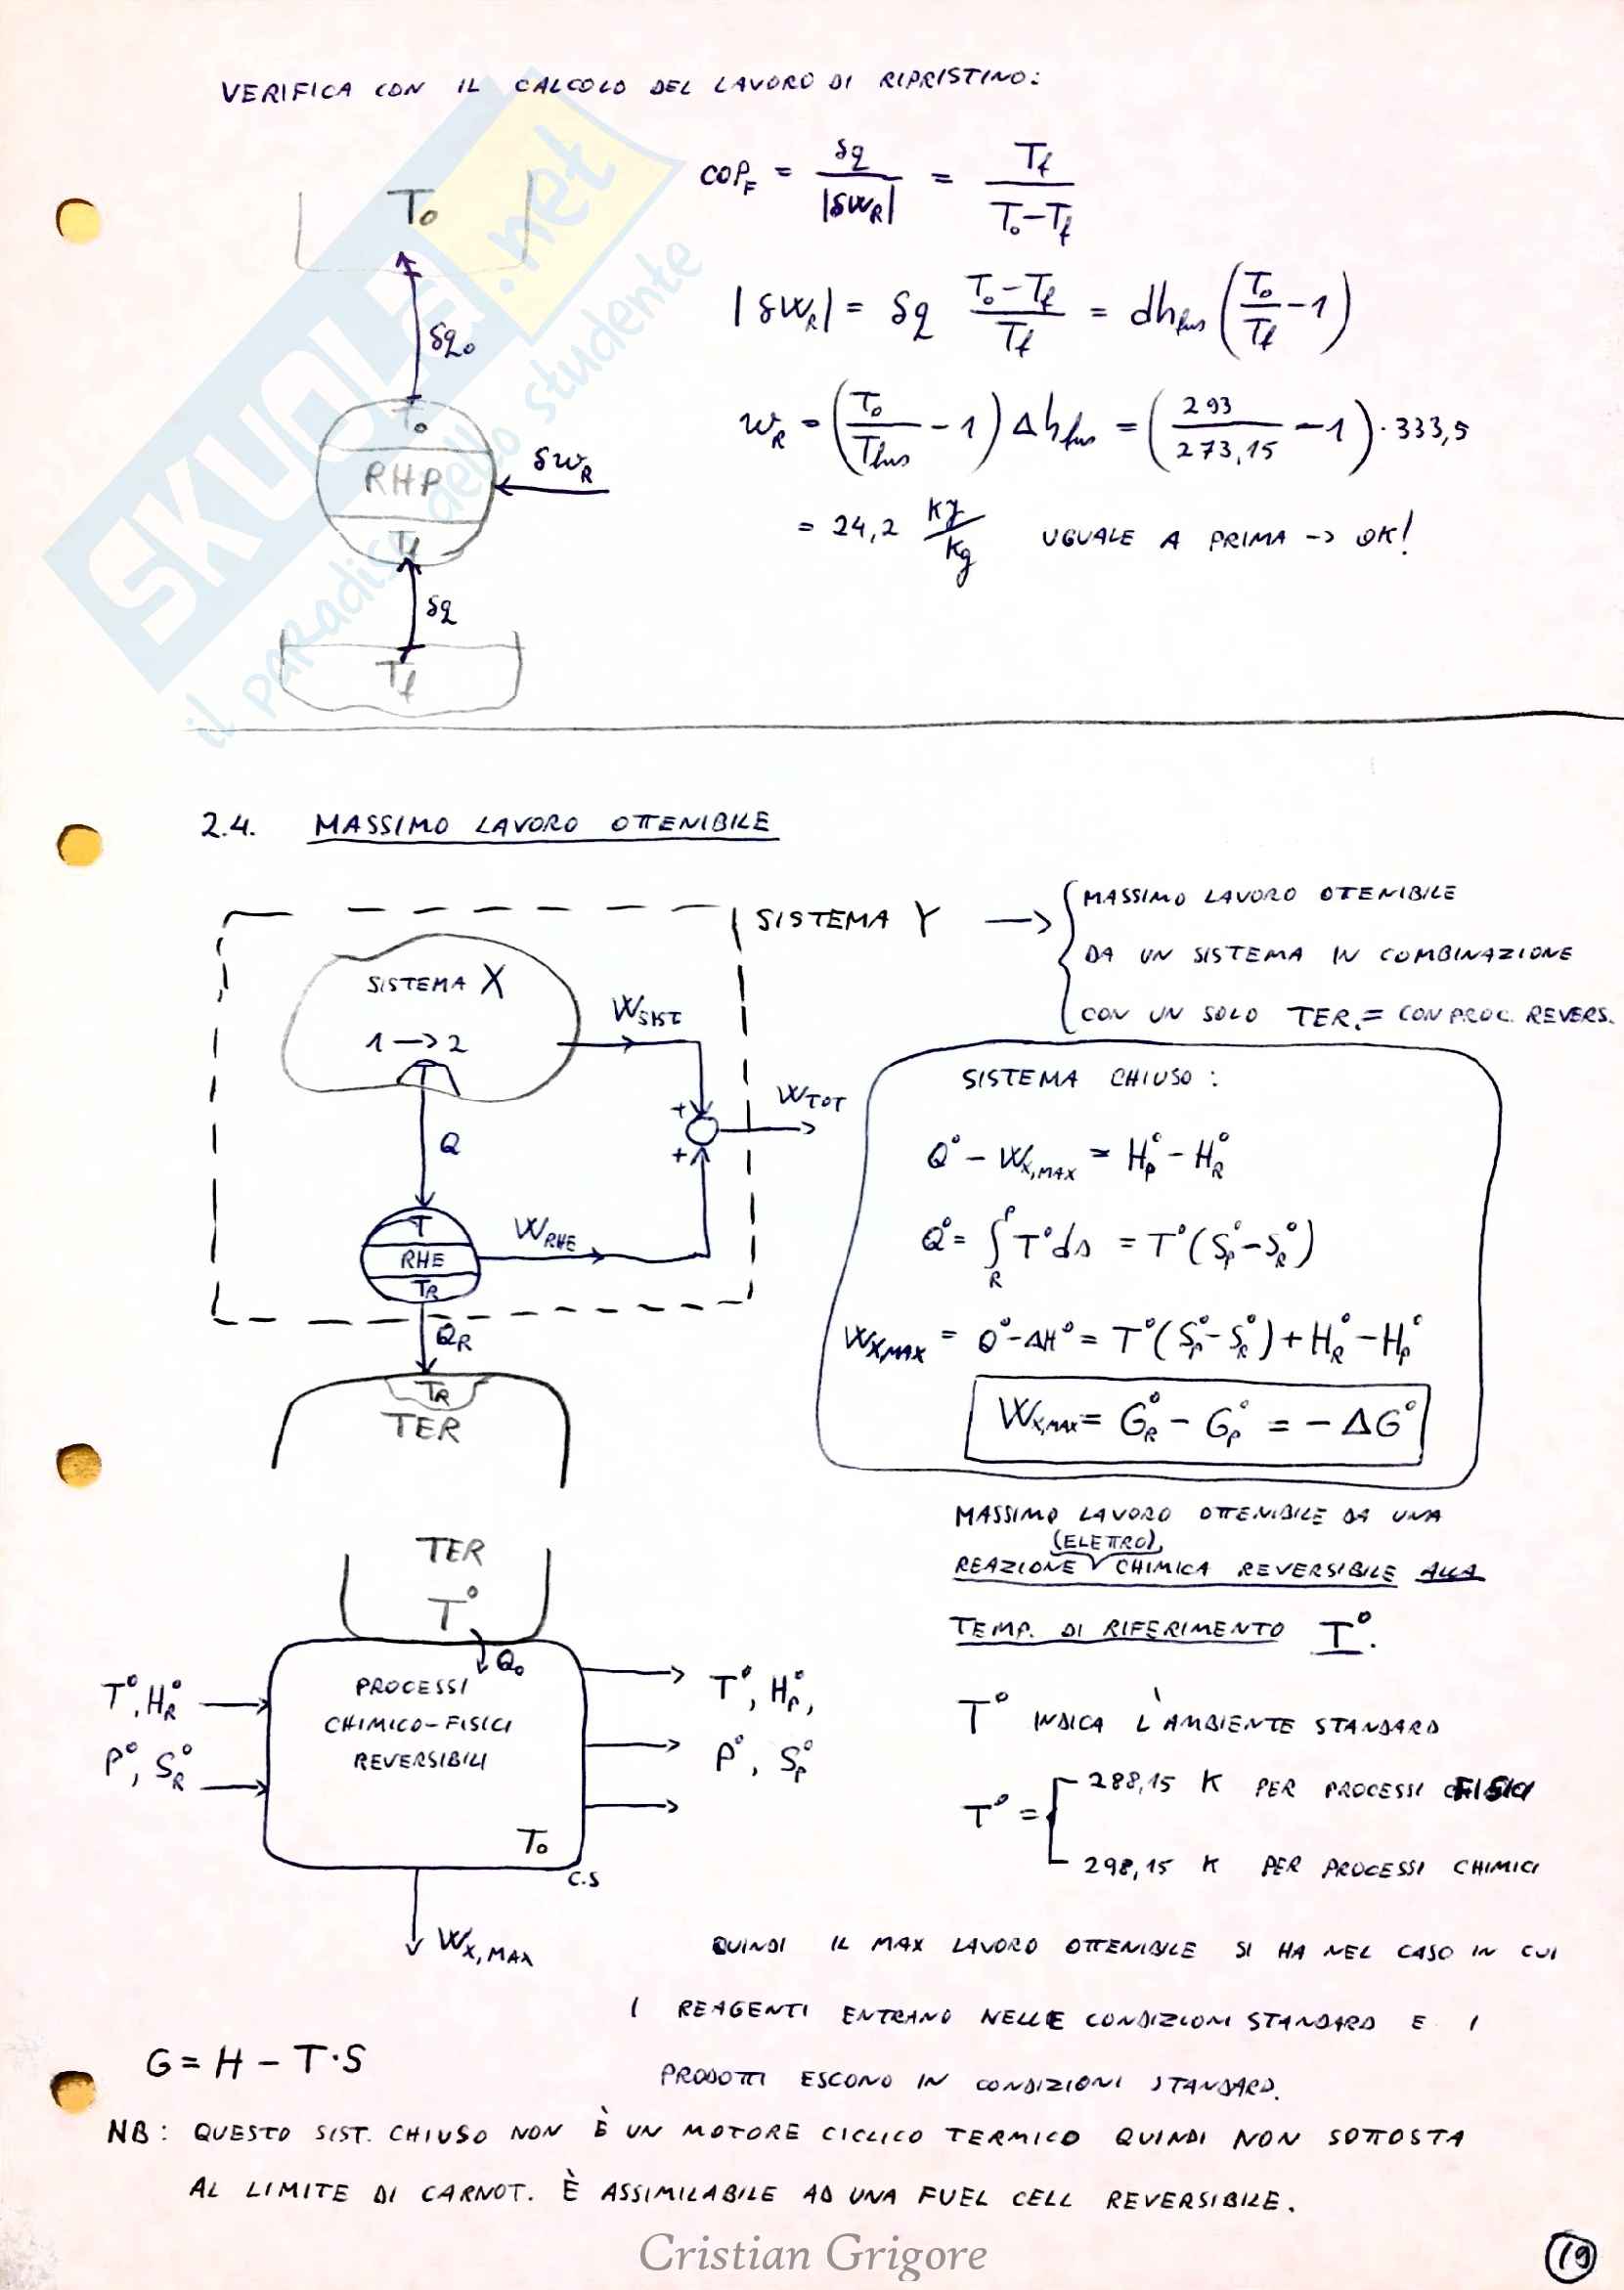 VERIFICA CON IL CALCOLO DEL LAVORO DI RIPRISTINO:
COP_F = δq / |δw_R| = T_f / (T_0 - T_f)
T_0
|δw_R| = δq (T_0 - T_f) / T_f = dh_fus (T_0/T_f - 1)
δq_0
w_R = (T_0/T_fus - 1) Δh_fus = (293/273,15 - 1) · 333,5
T_0
RHP
δw_R
T_f
= 24,2 kJ/kg UGUALE A PRIMA -> OK!
δq
T_f
SKUOLA.net
il paradiso dello studente
2.4. MASSIMO LAVORO OTTENIBILE
SISTEMA Y → { MASSIMO LAVORO OTENIBILE
DA UN SISTEMA IN COMBINAZIONE
CON UN SOLO TER. = CON PROC. REVERS.
SISTEMA X
1 → 2
W_SIST
T
Q
+
+
W_TOT
T
RHE
T_R
W_RHE
Q_R
T_R
TER
SISTEMA CHIUSO :
Q° - W_X,MAX = H_P° - H_R°
Q° = ∫_R^P T° ds = T°(S_P° - S_R°)
W_X,MAX = Q° - ΔH° = T°(S_P° - S_R°) + H_R° - H_P°
W_X,MAX = G_R° - G_P° = - ΔG°
MASSIMO LAVORO OTTENIBILE DA UNA
(ELETTRO)
REAZIONE CHIMICA REVERSIBILE ALLA
TEMP. DI RIFERIMENTO T°.
TER
T°
Q_0
T°, H_R°
P°, S_R°
PROCESSI
CHIMICO-FISICI
REVERSIBILI
T_0
C.S
T°, H_P°,
P°, S_P°
W_X,MAX
T° INDICA L'AMBIENTE STANDARD
T° = 288,15 K PER PROCESSI FISICI
298,15 K PER PROCESSI CHIMICI
QUINDI IL MAX LAVORO OTTENIBILE SI HA NEL CASO IN CUI
I REAGENTI ENTRANO NELLE CONDIZIONI STANDARD E I
PRODOTTI ESCONO IN CONDIZIONI STANDARD.
G = H - T·S
NB: QUESTO SIST. CHIUSO NON È UN MOTORE CICLICO TERMICO QUINDI NON SOTTOSTA
AL LIMITE DI CARNOT. È ASSIMILABILE AD UNA FUEL CELL REVERSIBILE.
Cristian Grigore
19